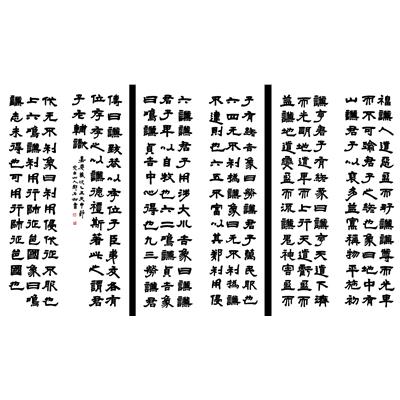 福謙人道惡盈而好謙謙尊而光卑
而不可踰君子之終也象曰地中有
山謙君子以裒多益寡稱物平施初
謙亨君子有終彖曰謙亨天道下濟
而光明地道卑而上行天道虧盈而
益謙地道變盈而流謙鬼神害盈而
子有終吉象曰勞謙君子萬民服也
六四无不利撝謙象曰无不利撝謙
不違則也六五不富以其鄰利用侵
六謙謙君子用涉大川吉象曰謙謙
君子卑以自牧也六二鳴謙貞吉象
曰鳴謙貞吉中心得也九三勞謙君
傳曰謙致恭以存位子臣弟友各有
位存存之以謙德斯著此之謂君
子左輔謙
伐无不利象曰利用侵伐征不服也
上六鳴謙利用行師征邑國象曰鳴
謙志未得也可用行師征邑國也